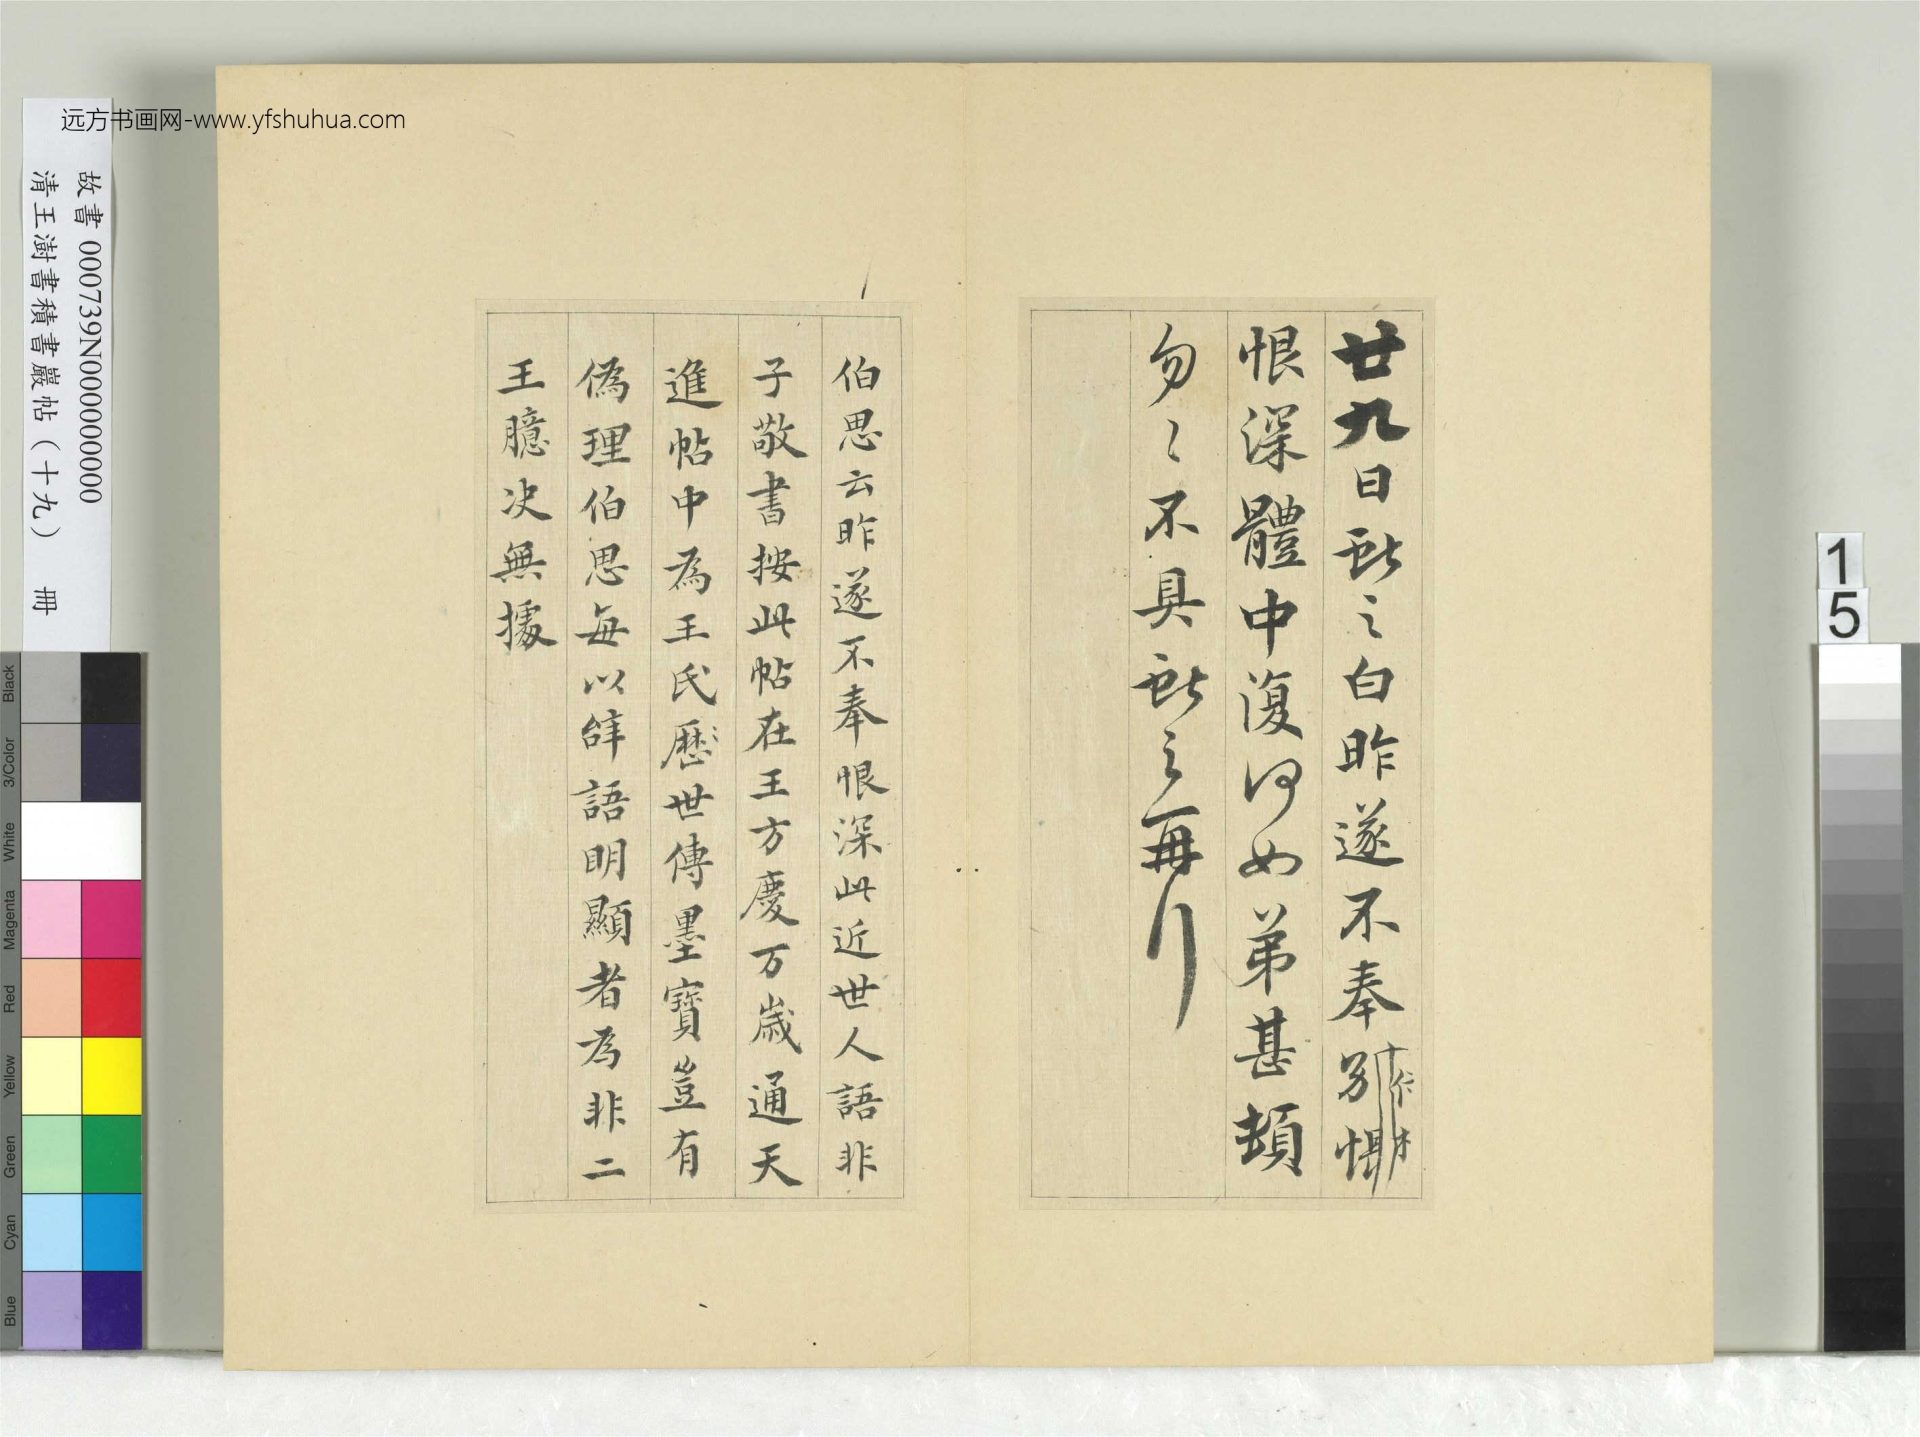 远方书画网-www.yfshuhua.com
故書 000739N000000000
清王澍書積書巖帖（十九） 冊
廿九日獻之白昨遂不奉別悵
恨深體中復何如弟甚頓
勿〻不具獻之再行
伯思云昨遂不奉恨深此近世人語非
子敬書按此帖在王方慶万歲通天
進帖中為王氏歷〻世傳墨寶豈有
偽理伯思每以辝語明顯者為非二
王臆决無據
15
Black
3/Color
White
Magenta
Red
Yellow
Green
Cyan
Blue